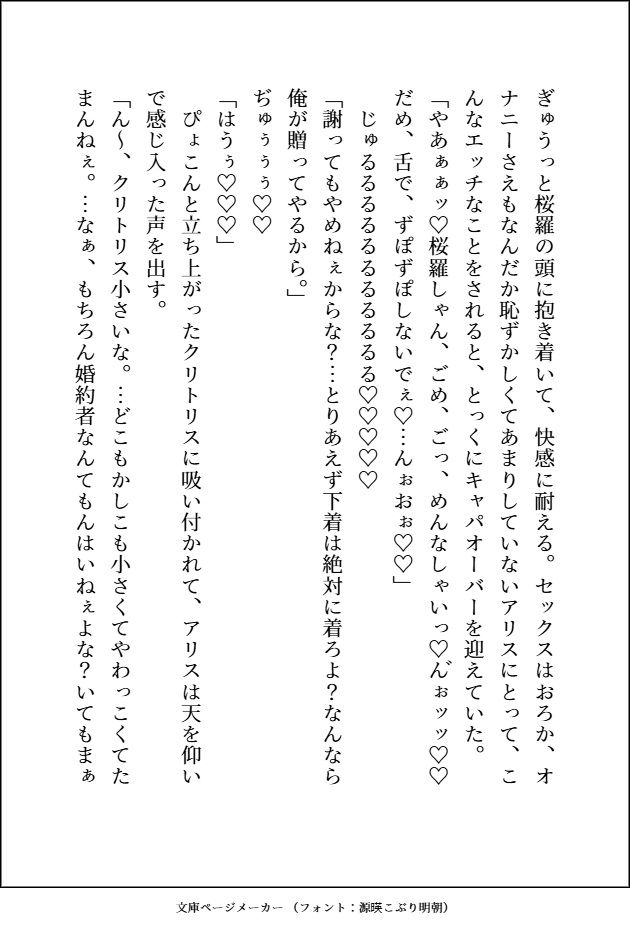 ぎゅうっと桜羅の頭に抱き着いて、快感に耐える。セックスはおろか、オ
ナニーさえもなんだか恥ずかしくてあまりしていないアリスにとって、こ
んなエッチなことをされると、とっくにキャパオーバーを迎えていた。
「やあぁぁッ♡桜羅しゃん、ごめ、ごっ、めんなしゃいっ♡ん゛ぉッッ♡♡
だめ、舌で、ずぽずぽしないでぇ♡…んぉおぉ♡♡」
じゅるるるるるるるるるるる♡♡♡♡♡
「謝ってもやめねぇからな?…とりあえず下着は絶対に着ろよ?なんなら
俺が贈ってやるから。」
ぢゅぅぅぅ♡♡
「はうぅ♡♡♡」
ぴょこんと立ち上がったクリトリスに吸い付かれて、アリスは天を仰い
で感じ入った声を出す。
「ん〜、クリトリス小さいな。…どこもかしこも小さくてやわっこくてた
まんねぇ。…なぁ、もちろん婚約者なんてもんはいねぇよな?いてもまぁ
文庫ページメーカー（フォント：源暎こぶり明朝）